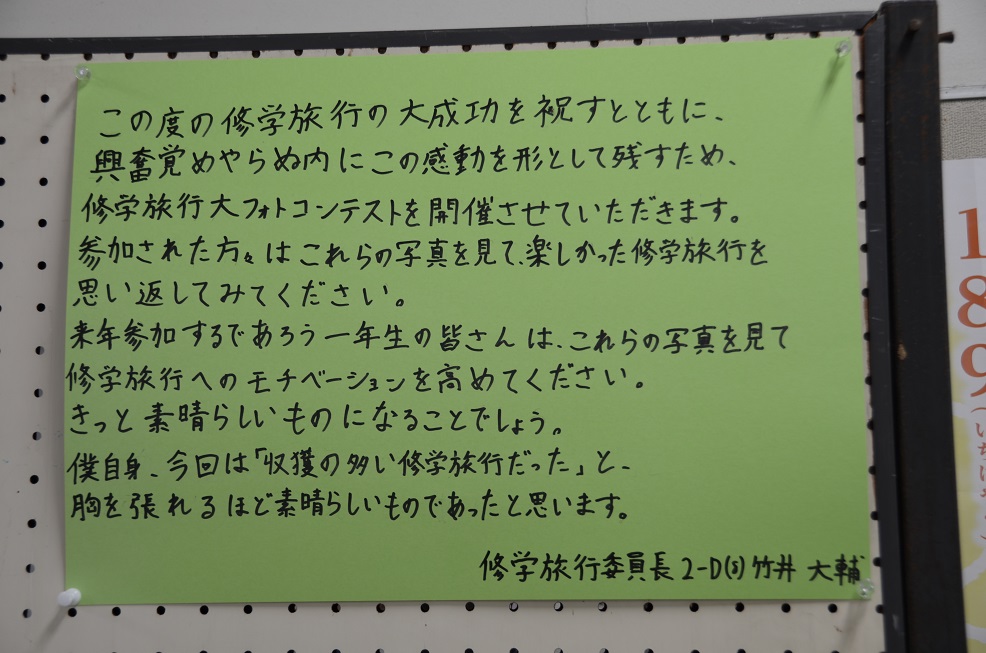 この度の修学旅行の大成功を祝すとともに、
興奮覚めやらぬ内にこの感動を形として残すため、
修学旅行大フォトコンテストを開催させていただきます。
参加された方々はこれらの写真を見て、楽しかった修学旅行を
思い返してみてください。
来年参加するであろう一年生の皆さんは、これらの写真を見て
修学旅行へのモチベーションを高めてください。
きっと素晴らしいものになることでしょう。
僕自身、今回は「収獲の多い修学旅行だった」と、
胸を張れるほど素晴らしいものであったと思います。
修学旅行委員長 2-D(8) 竹井 大輔
1
8
9